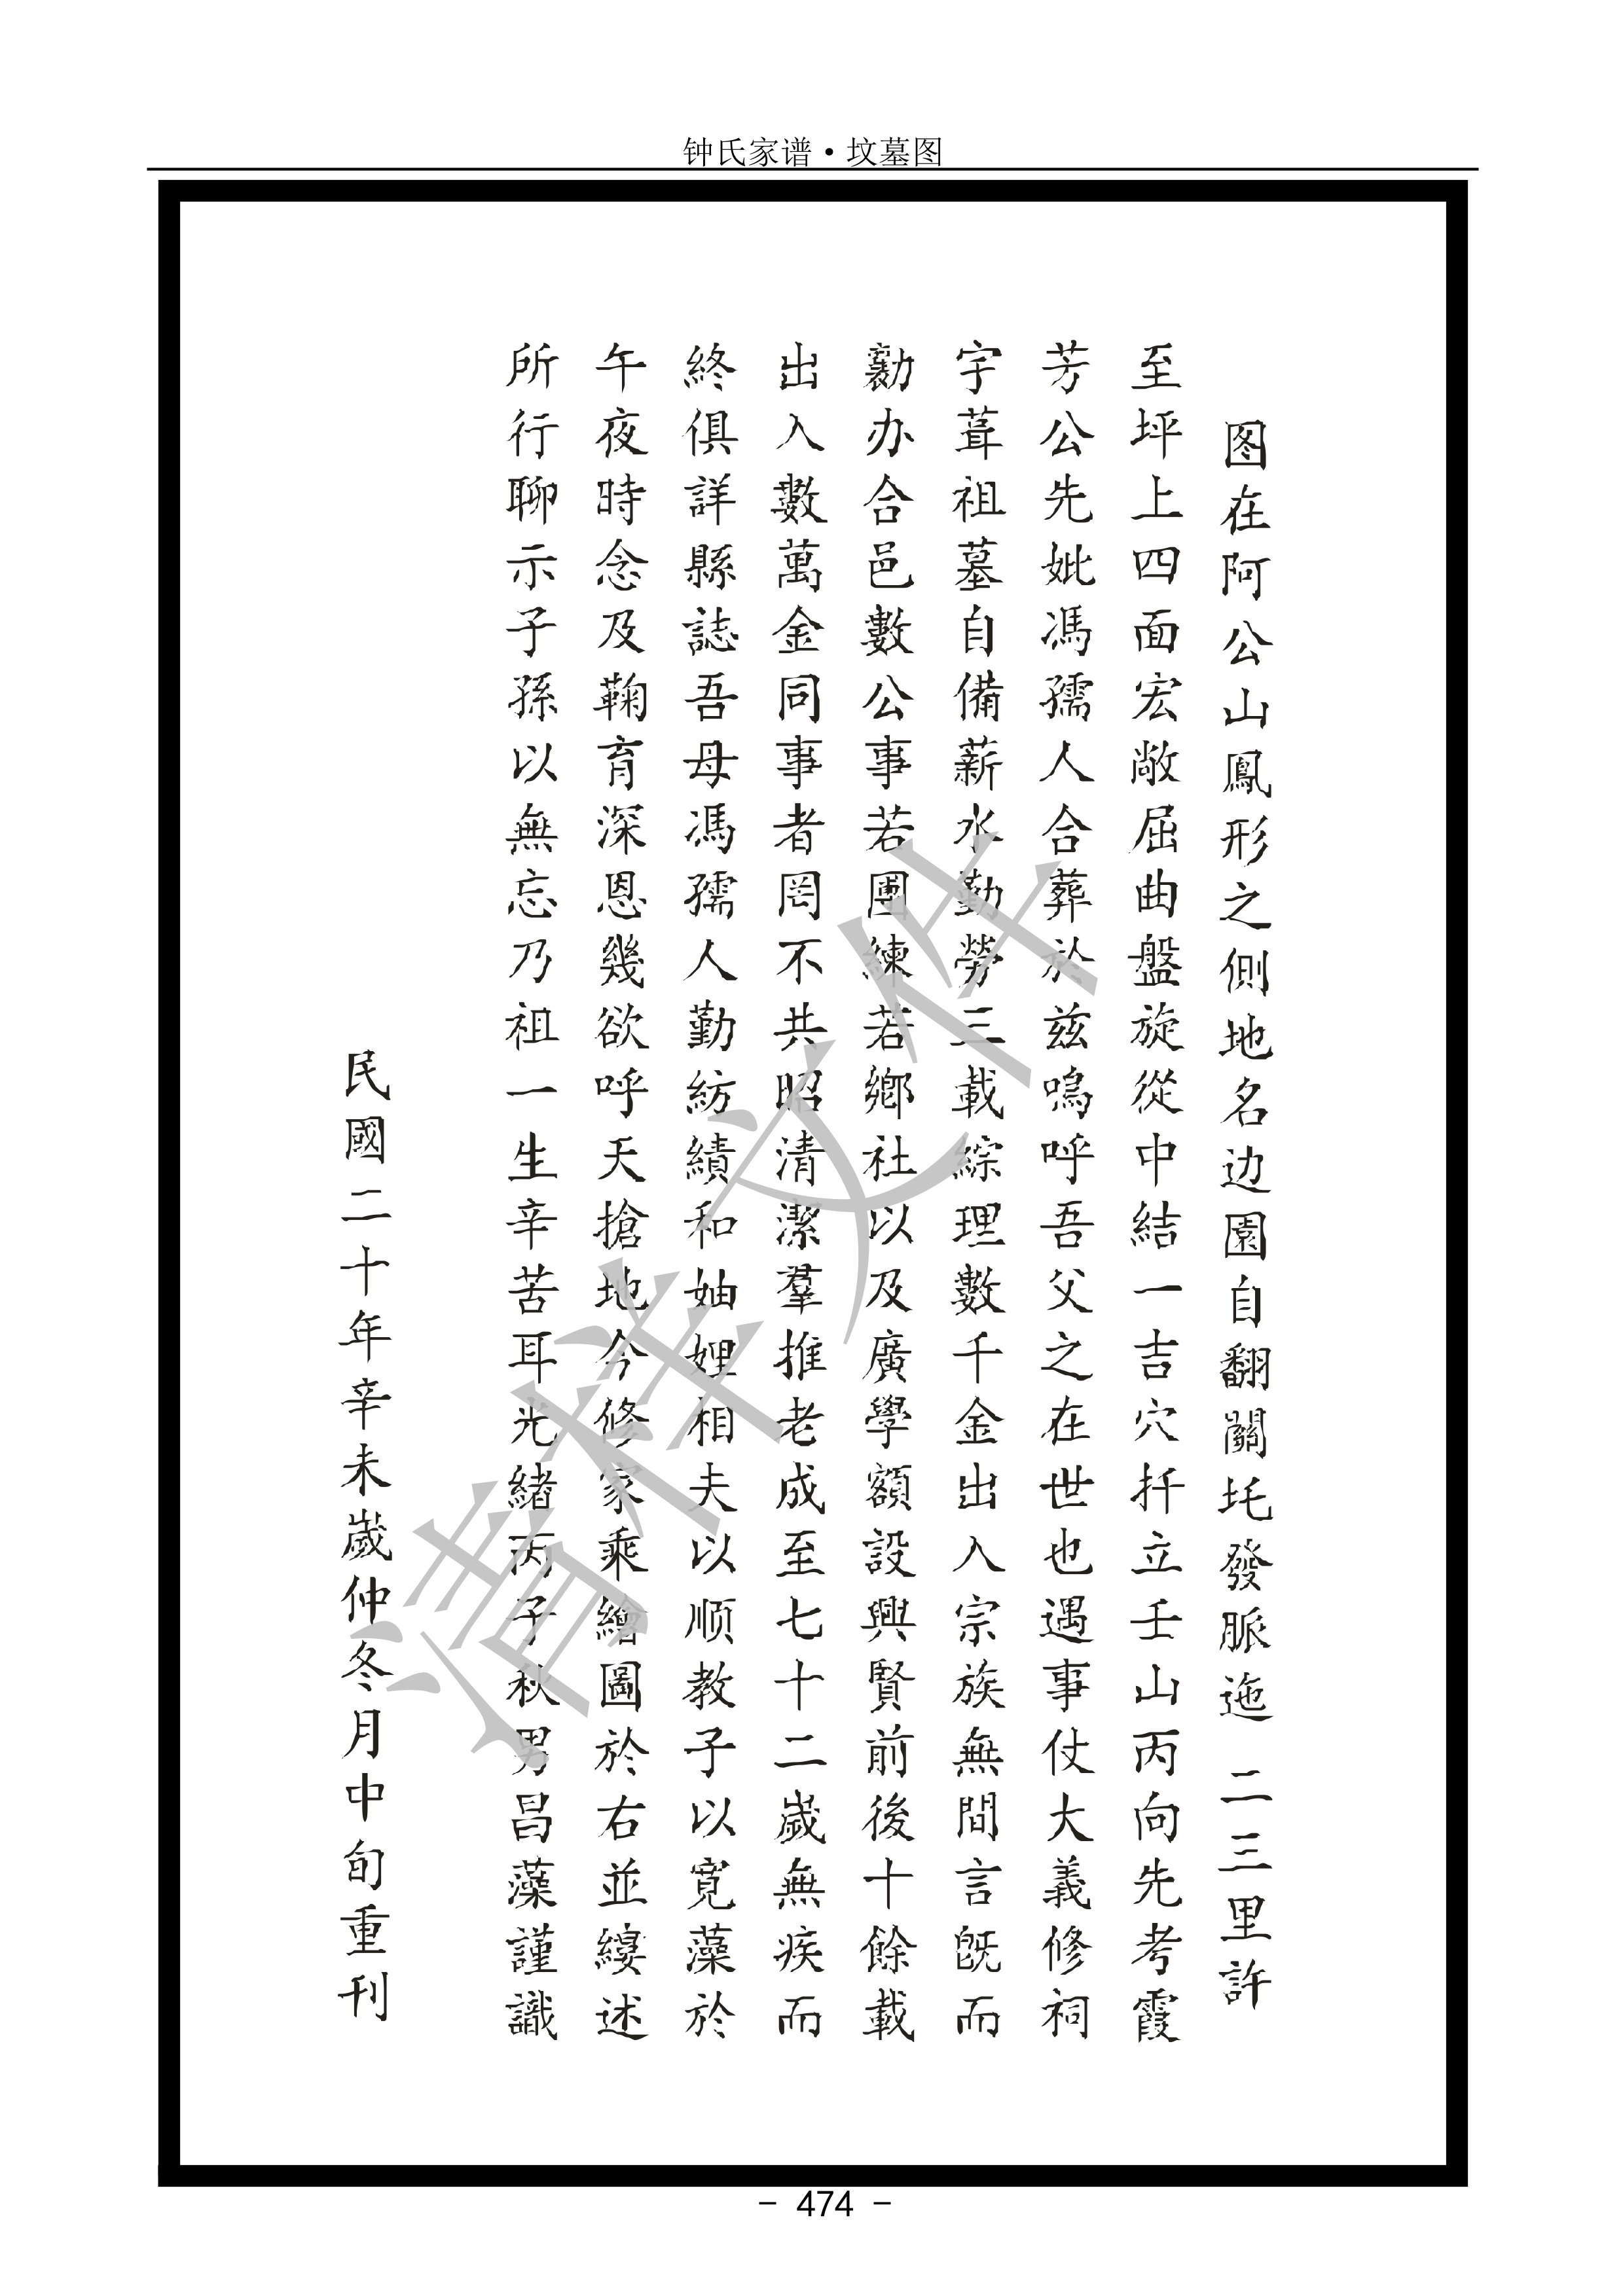 钟氏家谱·坟墓图
图在阿公山鳳形之側地名边園自翻關圫發脈迤二三里許
至坪上四面宏敞屈曲盤旋從中結一吉穴扦立壬山丙向先考霞
芳公先妣馮孺人合葬於兹嗚呼吾父之在世也遇事仗大義修祠
宇葺祖墓自備薪水勤勞三載綜理數千金出入宗族無間言既而
勷办合邑數公事若團練若鄉社以及廣學額設興賢前後十餘載
出入數萬金同事者罔不共昭清潔羣推老成至七十二歲無疾而
終俱詳縣誌吾母馮孺人勤紡績和妯娌相夫以顺教子以寬藻於
午夜時念及鞠育深恩幾欲呼天搶地今修家乘繪圖於右並縷述
所行聊示子孫以無忘乃祖一生辛苦耳光緒丙子秋男昌藻謹識
民國二十年辛未歲仲冬月中旬重刊
清样文件
- 474 -